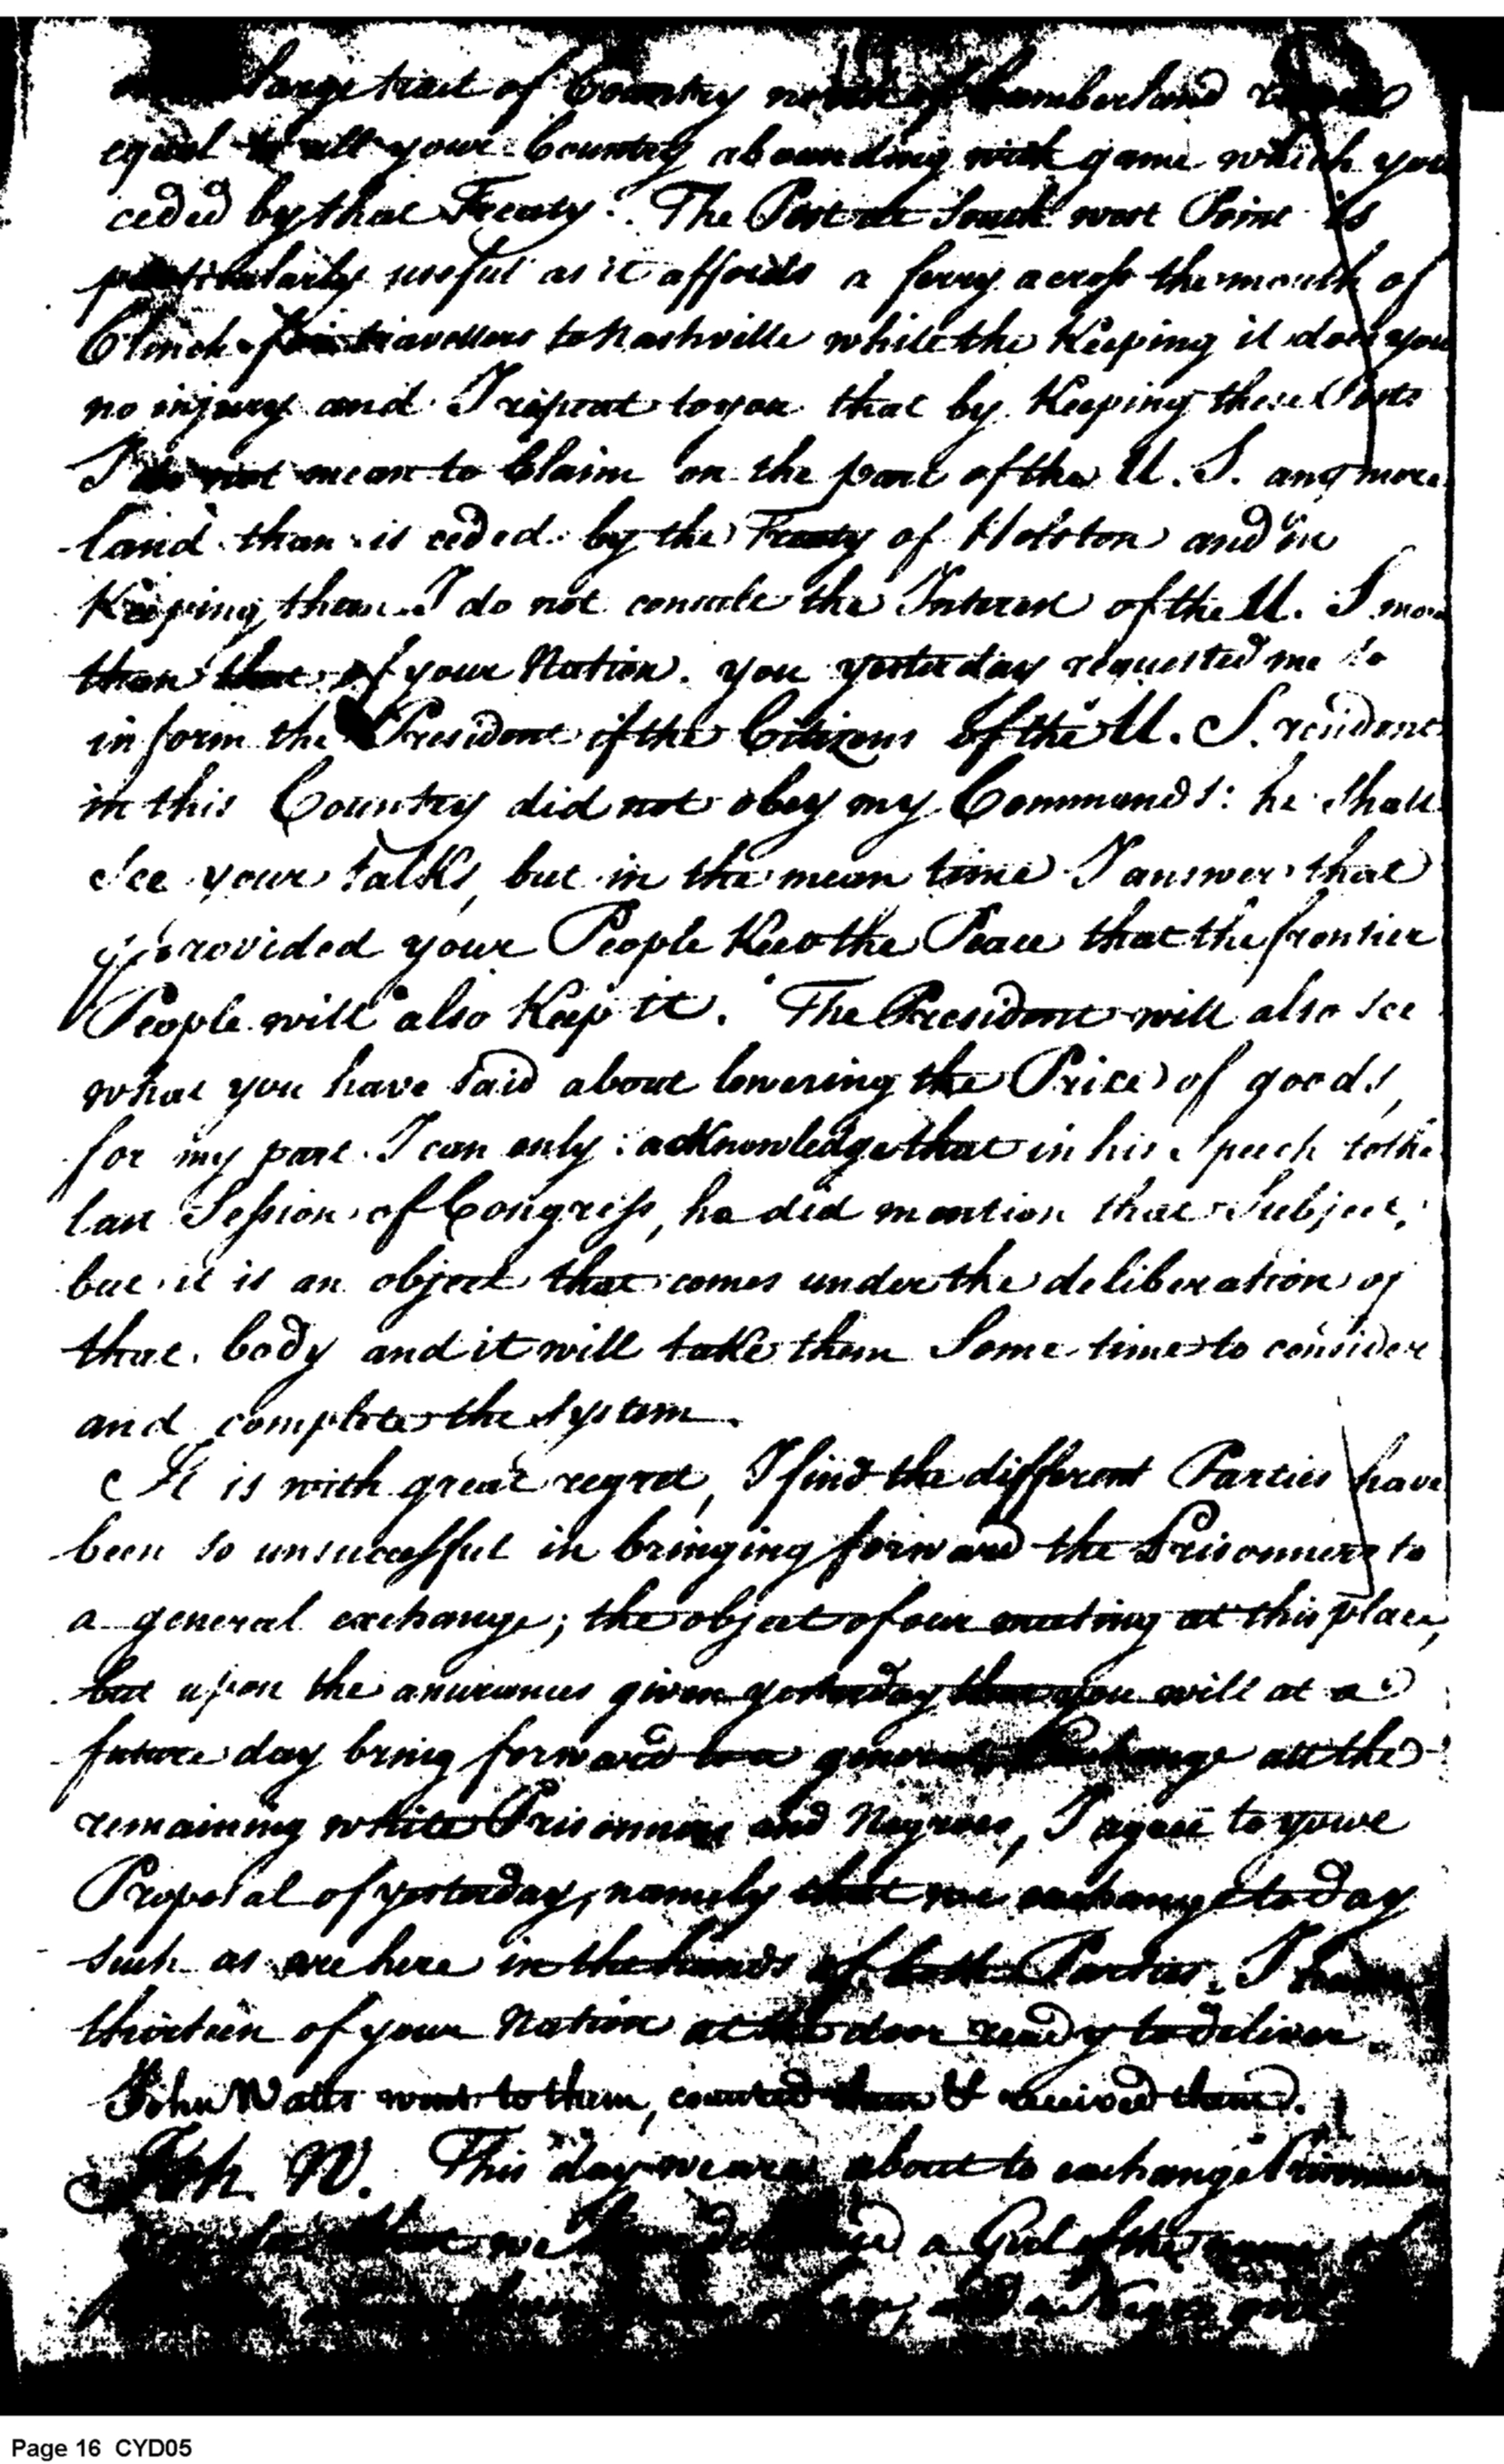 large tract of Country north of Cumberland
equal to all your Country abounding with game which you
ceded by that Treaty. The Post at South west Point is
particularly useful as it affords a ferry across the mouth of
Clinch for travellers to Nashville while the Keeping it does you
no injury and I repeat to you that by Keeping these Posts
I do not mean to Claim on the part of the U. S. any more
land than is ceded by the Treaty of Holston and in
Keeping them I do not consult the Interest of the U. S. more
than that of your Nation. you yesterday requested me to
inform the President if the Citizens of the U. S. resident
in this Country did not obey my Commands: he shall
see your talks, but in the mean time I answer that
provided your People Keep the Peace that the frontier
People will also Keep it. The President will also see
what you have said about lowering the Price of goods,
for my part I can only acknowledge that in his Speech to the
last Session of Congress, he did mention that Subject,
but it is an object that comes under the deliberation of
that body and it will take them Some time to consider
and complete the System.
It is with great regret, I find the different Parties have
been so unsuccessful in bringing forward the Prisonners to
a general exchange; the object of our meeting at this place,
but upon the assurances given yesterday that you will at a
future day bring forward to a general Exchange all the
remaining white Prisonners and Negroes, I agree to your
Proposal of yesterday, namely that we exchange to day
such as are here in the hands of both Parties. I have
thirteen of your Nation at the door ready to deliver.
John Watts went to them, counted them & received them).
Joh. W. This day we are about to exchange Prisonners
we delivered a Girl of the name of
and a Negro
Page 16 CYD05